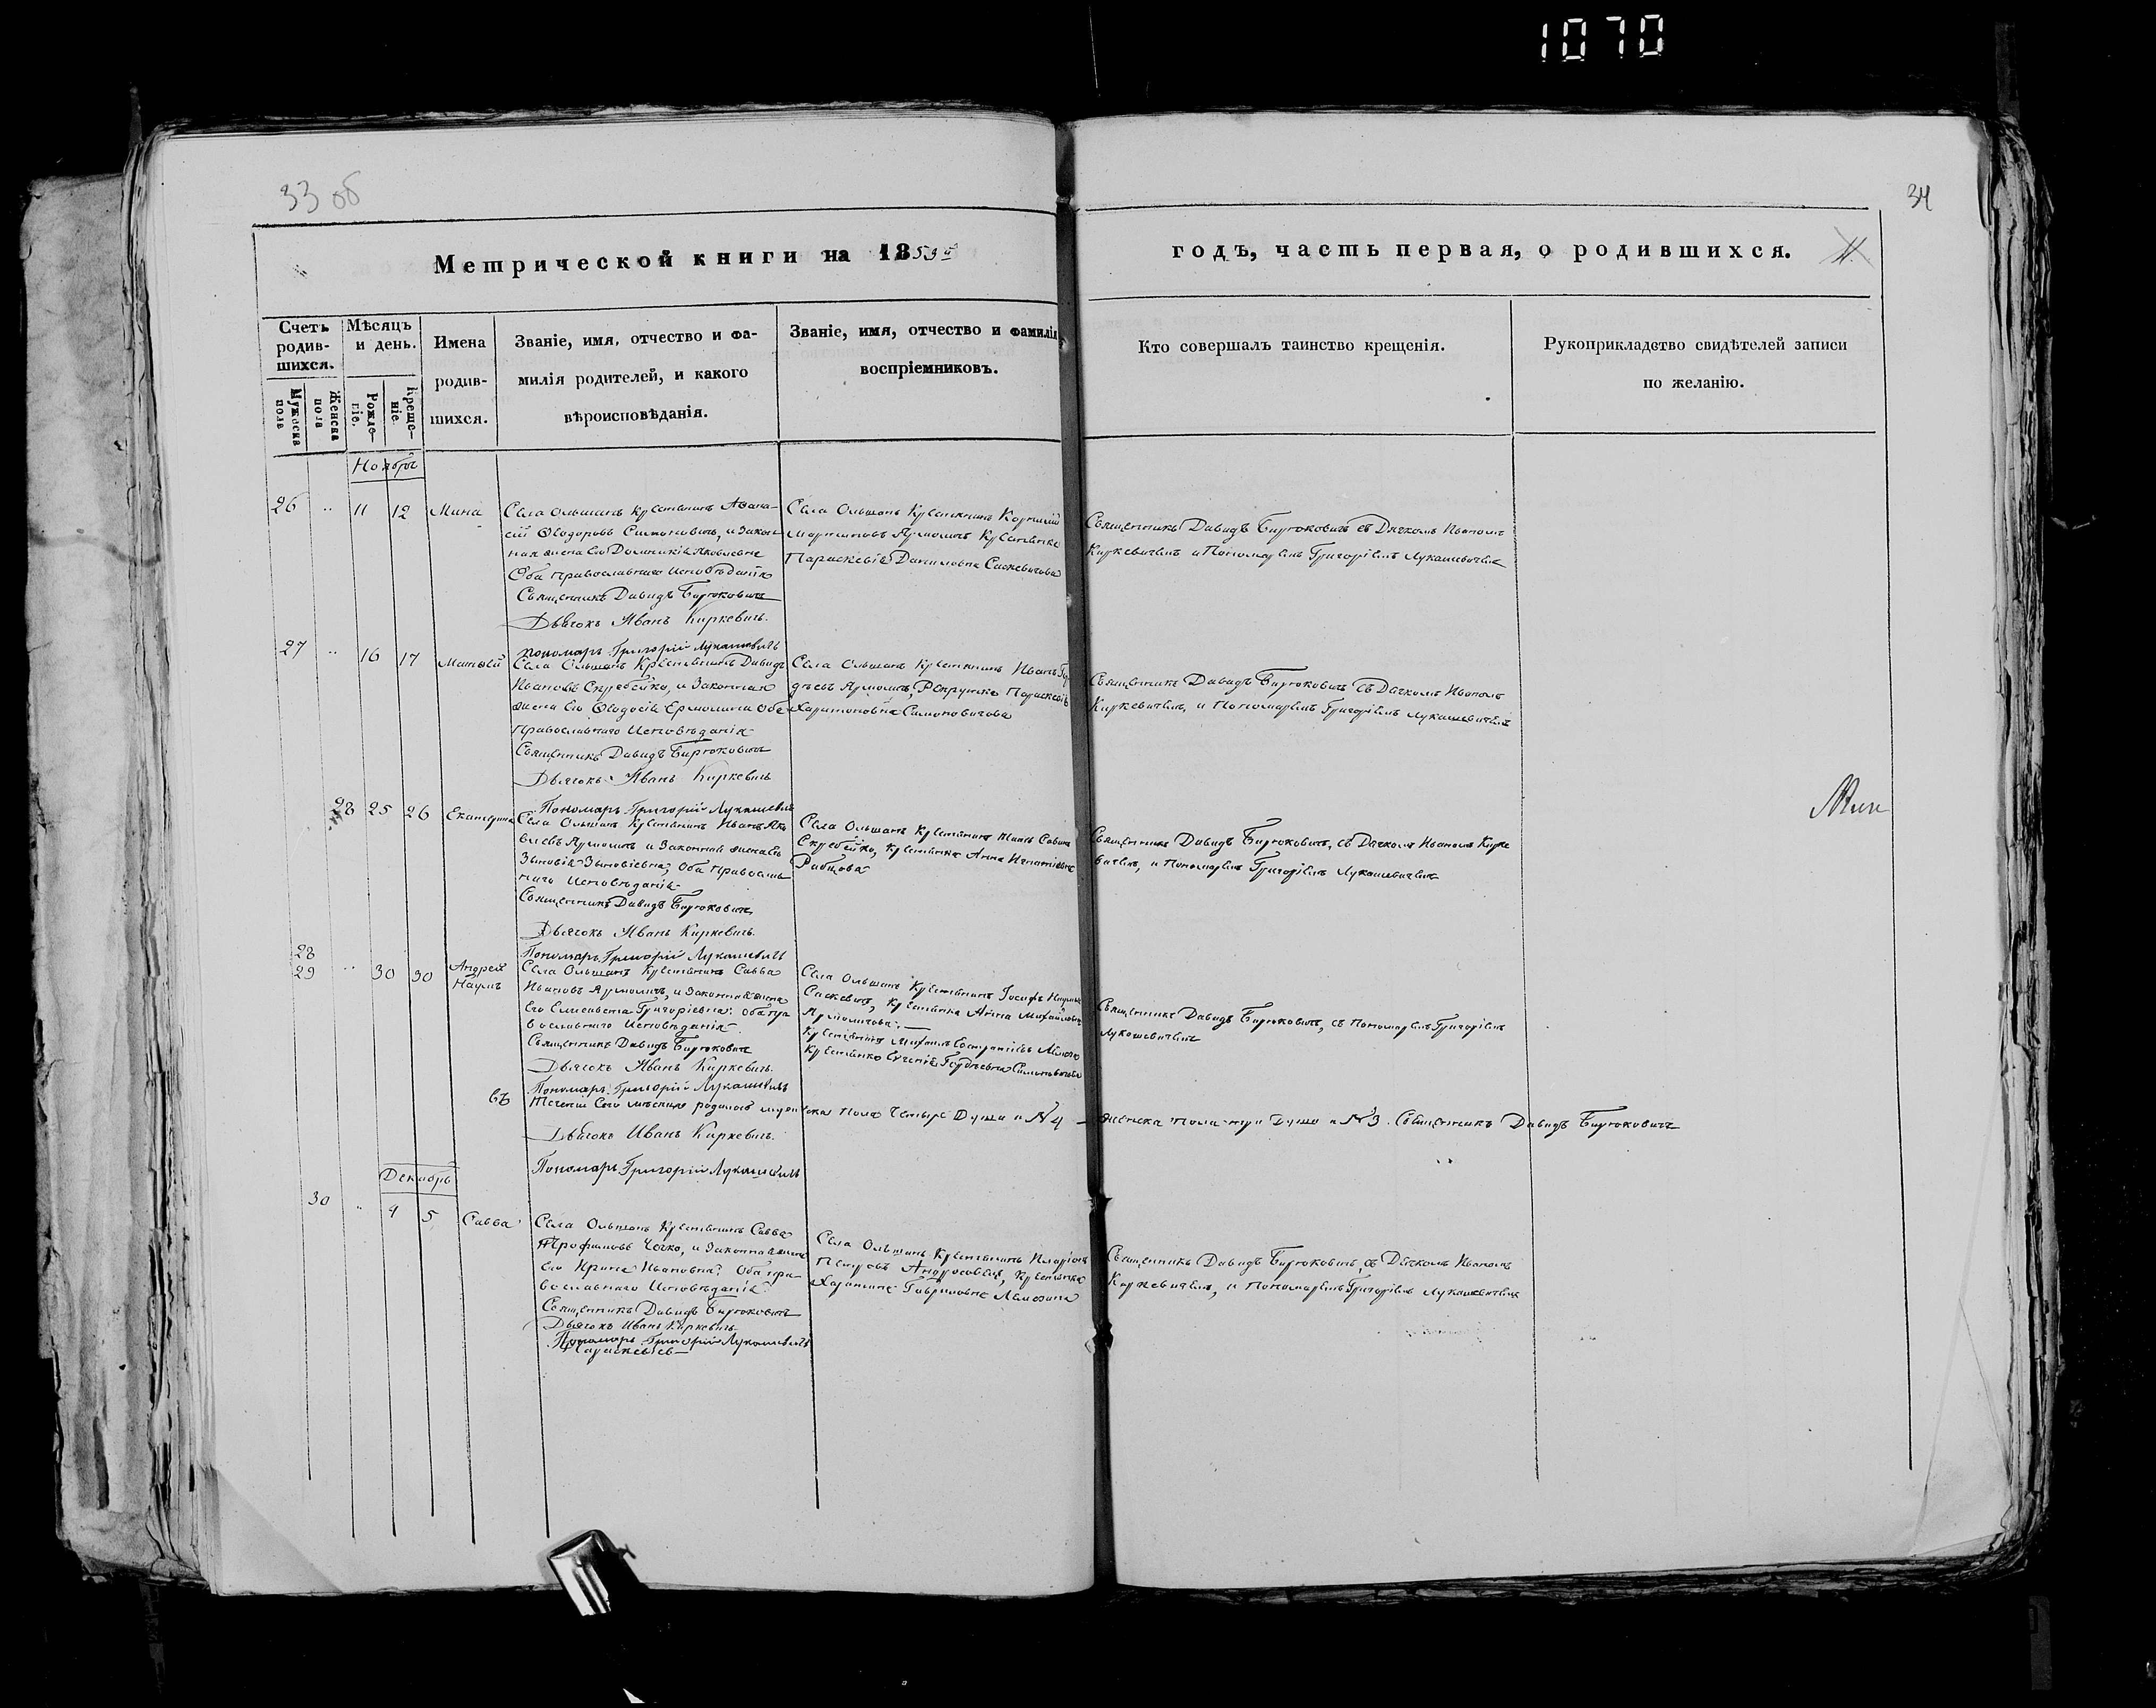 1070
33 об
34
Метрической книги на 1853й
годъ, часть первая, о родившихся.
11.
Счетъ родив-шихся.
Мужеска пола
Женска пола
Мѣсяцъ и день.
Рожде-ніе.
Креще-ніе.
Имена родив-шихся.
Званіе, имя, отчество и фа-
милія родителей, и какого
вѣроисповѣданія.
Званіе, имя, отчество и фамилія
воспріемниковъ.
Кто совершалъ таинство крещенія.
Рукоприкладство свидѣтелей записи
по желанію.
Ноябрь
26 .. 11 12 Мина
Села Ольшанъ Крестьянинъ Афана-
сій Ѳеодоровъ Симоновичъ, и Закон-
ная жена Его Домникія Яковлевна
Оба православнаго Исповѣданія
Священникъ Давидъ Бирюковичъ
Дьячокъ Иванъ Киркевичъ.
пономарь Григорій Лукашевичъ
Села Ольшанъ Крестьянинъ Корнилій
Мартиновъ Ярмоличъ Крестьянка
Параскевія Даниловна Саскевичова
Священникъ Давидъ Бирюковичъ съ Дячкомъ Иваномъ
Киркевичемъ и Пономаремъ Григоріемъ Лукашевичемъ
27 .. 16 17 Матѳей
Села Ольшанъ Крестьянинъ Давидъ
Ивановъ Скребейко, и Законная
жена Его Ѳеодосія Ермолина Оба
Православнаго Исповѣданія
Священникъ Давидъ Бирюковичъ
Дьячокъ Иванъ Киркевичъ
Пономарь Григорій Лукашевичъ
Села Ольшанъ Крестьянинъ Иванъ Гор
дѣевъ Ярмоличъ, Рекрутка Параскевія
Харитоновна Симоновичова
Священникъ Давидъ Бирюковичъ съ Дячкомъ Иваномъ
Киркевичемъ, и Пономаремъ Григоріемъ Лукашевичемъ
28 25 26 Екатерина
Села Ольшанъ Крестьянинъ Иванъ Яко
влевъ Ярмоличъ и Законная жена Его
Зѣновія Зѣновіевна, Оба Православ-
наго Исповѣданія
Священникъ Давидъ Бирюковичъ
Дьячокъ Иванъ Киркевичъ.
Пономарь Григорій Лукашевичъ
Села Ольшанъ Крестьянинъ
Скребейко, Крестьянка Анна Игнатіевна
Рабцова
Священникъ Давидъ Бирюковичъ, съ Дячкомъ Иваномъ Кирке
вичемъ, и Пономаремъ Григоріемъ Лукашевичемъ
28
29 .. 30 30 Андрей
Наумъ
Села Ольшанъ Крестьянинъ Савва
Ивановъ Ярмоличъ, и Законная жена
Его Елисавета Григоріевна; Оба пра
вославнаго Исповѣданія.
Священникъ Давидъ Бирюковичъ
Дьячокъ Иванъ Киркевичъ.
Пономарь Григорій Лукашевичъ
Села Ольшанъ Крестьянинъ Іосифъ
Саскевичъ, Крестьянка Анна Михайловна
Ярмоличова.
Крестьянинъ Михаилъ
Крестьянка Евгенія Гордѣевна Симоновичова
Священникъ Давидъ Бирюковичъ, съ Пономаремъ Григоріемъ
Лукашевичемъ
въ Теченіи Сего мѣсяца родилось мужеска пола Четыре Души № 4 — женска пола три Души № 3. Священникъ Давидъ Бирюковичъ
Дьячокъ Иванъ Киркевичъ.
Пономарь Григорій Лукашевичъ
Декабрь
30 .. 4 5 Савва
Села Ольшанъ Крестьянинъ Савва
Трофимовъ Чечко, и Законная жена
Его Ирина Ивановна; Оба пра-
вославнаго Исповѣданія
Священникъ Давидъ Бирюковичъ
Дьячокъ Иванъ Киркевичъ
Пономарь Григорій Лукашевичъ
Села Ольшанъ Крестьянинъ Иларіонъ
Петровъ Андросовецъ, Крестьянка
Гавриловна
Священникъ Давидъ Бирюковичъ, съ Дячкомъ Иваномъ
Киркевичемъ, и Пономаремъ Григоріемъ Лукашевичемъ